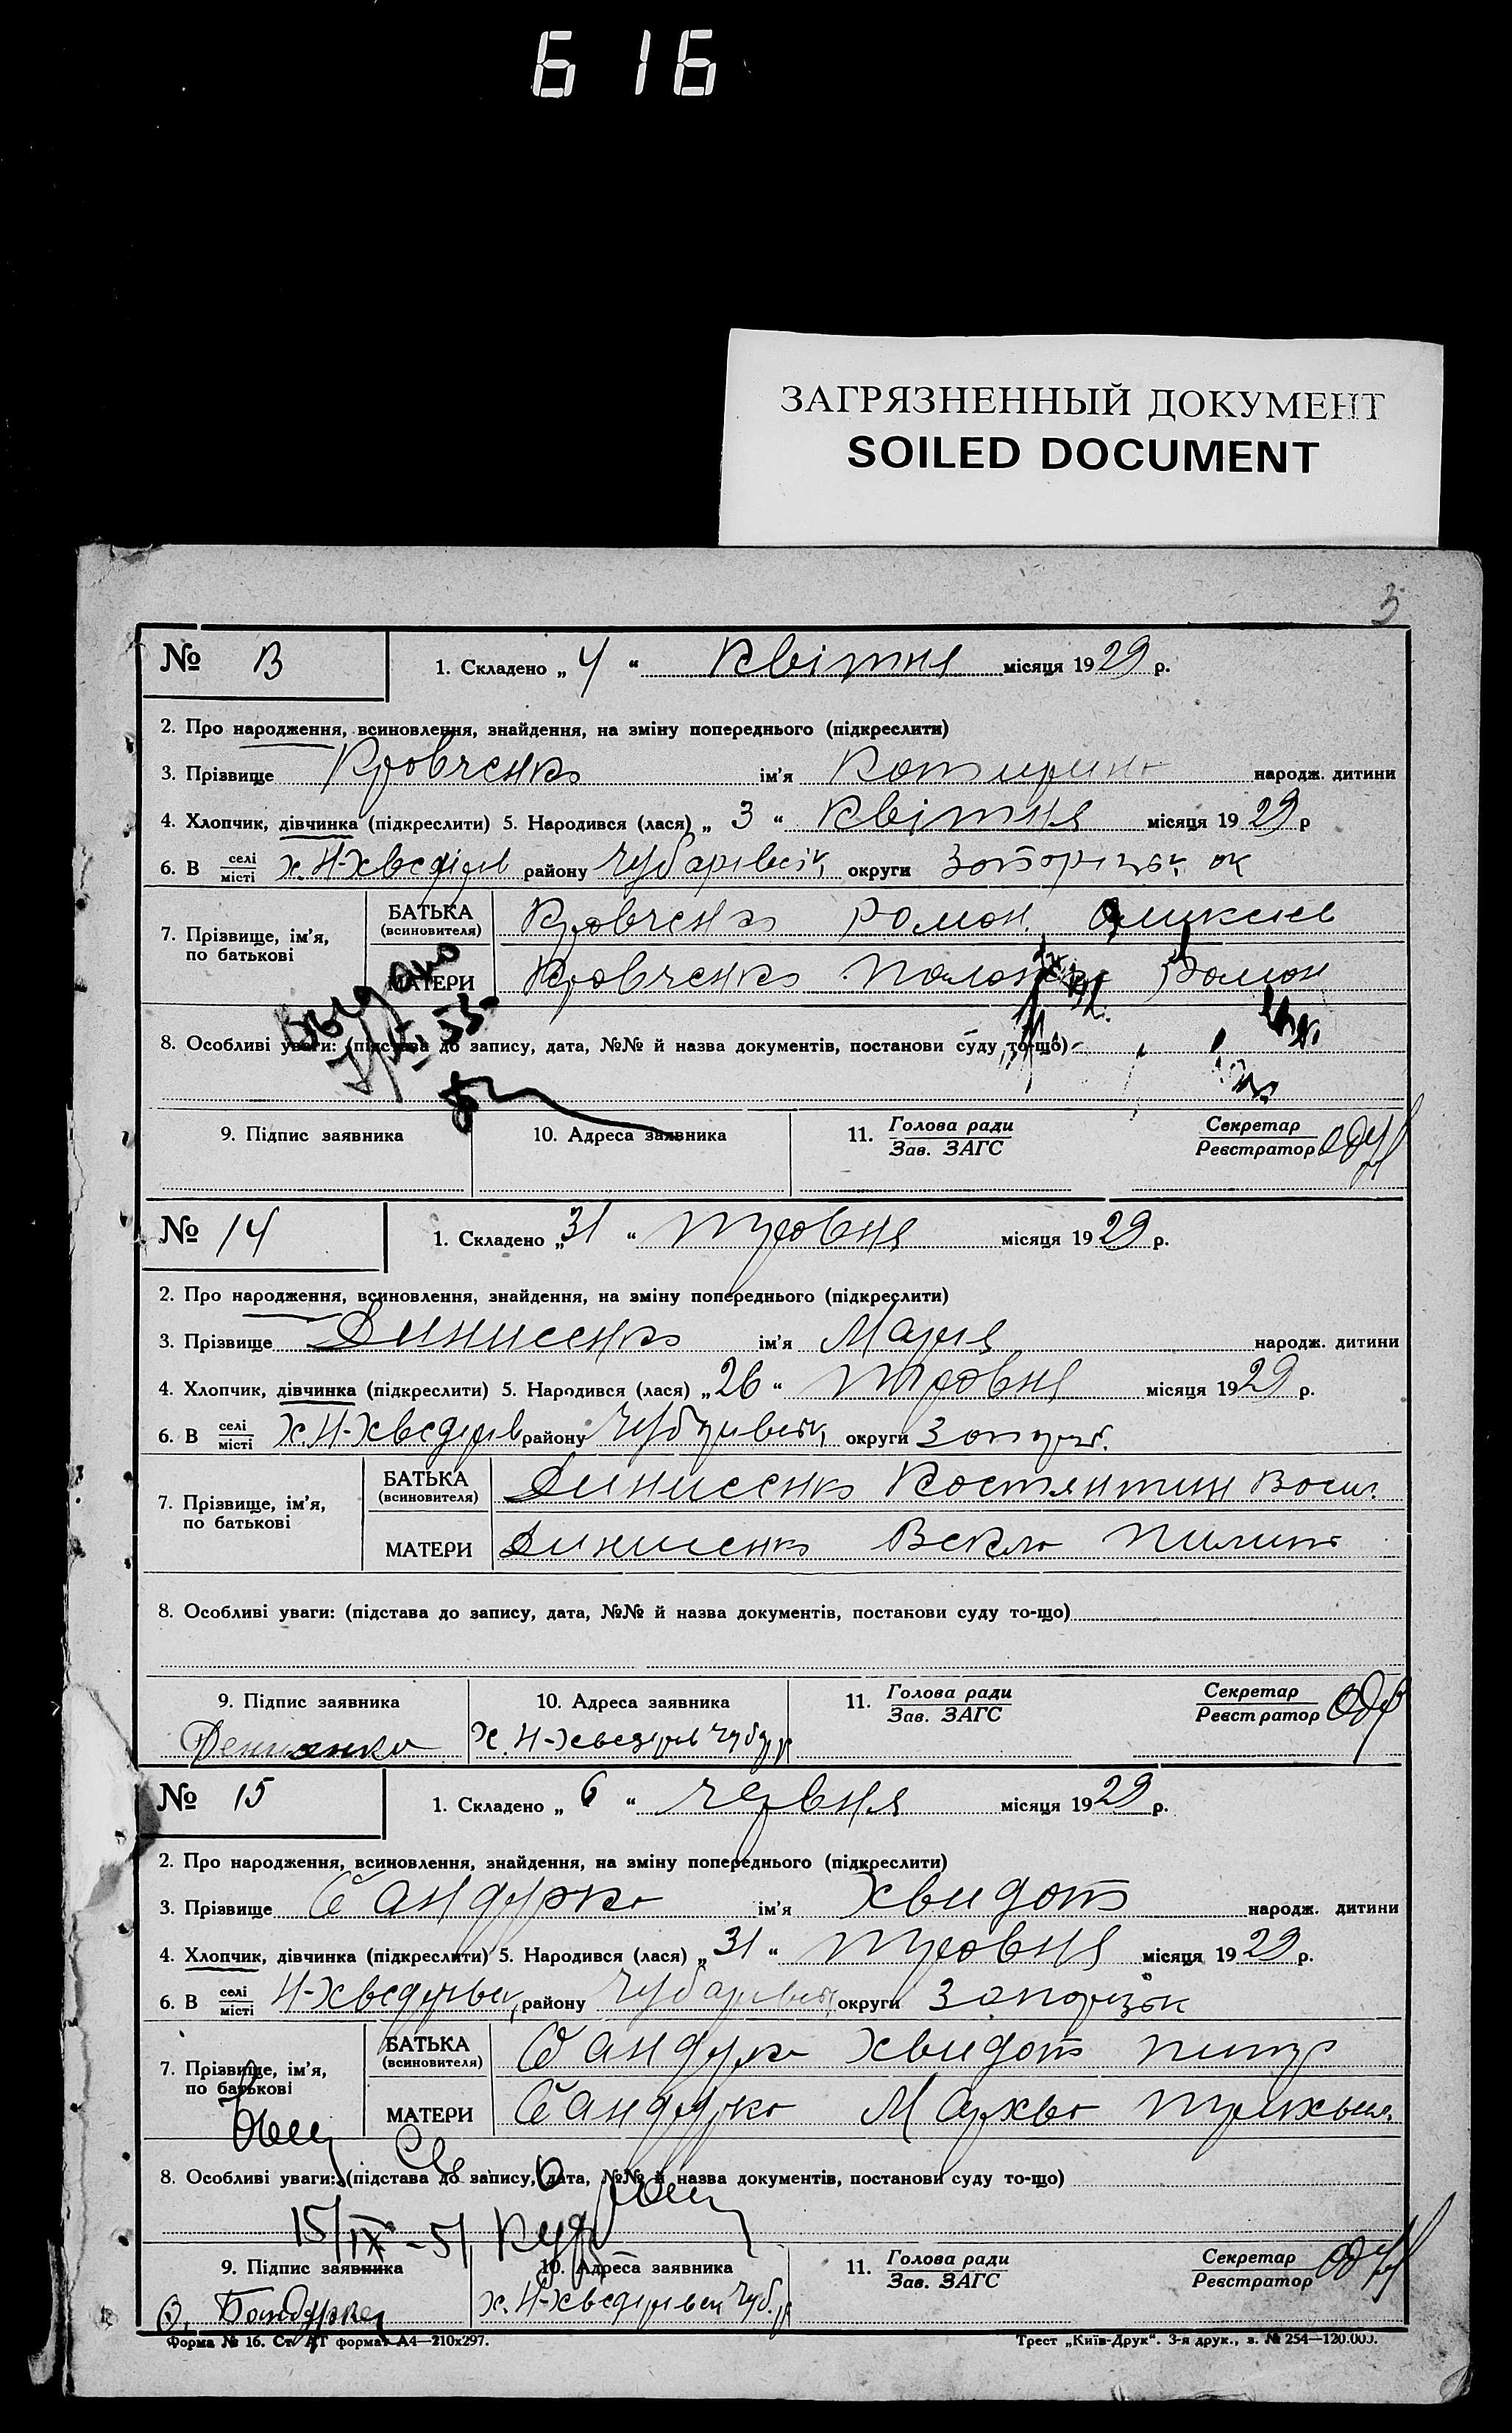 616
ЗАГРЯЗНЕННЫЙ ДОКУМЕНТ
SOILED DOCUMENT
3
№ 13 1. Складено „ 4 “ Квітня місяця 1929 р.
2. Про народження, всиновлення, знайдення, на зміну попереднього (підкреслити)
3. Прізвище Кровченко ім'я Котирина народж. дитини
4. Хлопчик, дівчинка (підкреслити) 5. Народився (лася) „ 3 “ Квітня місяця 1929 р
6. В селі місті х. Н-Хведірів району Чубарівськ, округи Запоризьк, ок
7. Прізвище, ім'я, по батькові БАТЬКА (всиновителя) Кровченко Ромон
МАТЕРИ Кровченко Ромон
Выдано
8. Особливі уваги: (підстава до запису, дата, №№ й назва документів, постанови суду то-що)
9. Підпис заявника 10. Адреса заявника 11. Голова ради Зав. ЗАГС Секретар Реєстратор
№ 14 1. Складено „ 31 “ Тровня місяця 1929 р.
2. Про народження, всиновлення, знайдення, на зміну попереднього (підкреслити)
3. Прізвище Динисенко ім'я Мария народж. дитини
4. Хлопчик, дівчинка (підкреслити) 5. Народився (лася) „ 26 “ Тровня місяця 1929 р.
6. В селі місті х. Н-Хведирів району Чубарівськ, округи Запориз.
7. Прізвище, ім'я, по батькові БАТЬКА (всиновителя) Динисенко Костянтин Восил.
МАТЕРИ Динисенко Векла Пилипо
8. Особливі уваги: (підстава до запису, дата, №№ й назва документів, постанови суду то-що)
9. Підпис заявника 10. Адреса заявника 11. Голова ради Зав. ЗАГС Секретар Реєстратор
х. Н-Хведирів Чуб. р
№ 15 1. Складено „ 6 “ червня місяця 1929 р.
2. Про народження, всиновлення, знайдення, на зміну попереднього (підкреслити)
3. Прізвище Бандурко ім'я Хвидот народж. дитини
4. Хлопчик, дівчинка (підкреслити) 5. Народився (лася) „ 31 “ Тровня місяця 1929 р.
6. В селі місті Н-Хведирівец, району Чубарівськ, округи Запоризьк
7. Прізвище, ім'я, по батькові БАТЬКА (всиновителя) Бандурко Хвидот
МАТЕРИ Бандурко Мархва
8. Особливі уваги: (підстава до запису, дата, №№ й назва документів, постанови суду то-що)
15/IX-51
9. Підпис заявника 10. Адреса заявника 11. Голова ради Зав. ЗАГС Секретар Реєстратор
Бандурка х. Н-Хведирівец Чуб. р
Форма № 16. Ст. АТ формат А4—210х297. Трест „Київ-Друк“. 3-я друк., з. № 254—120.000.